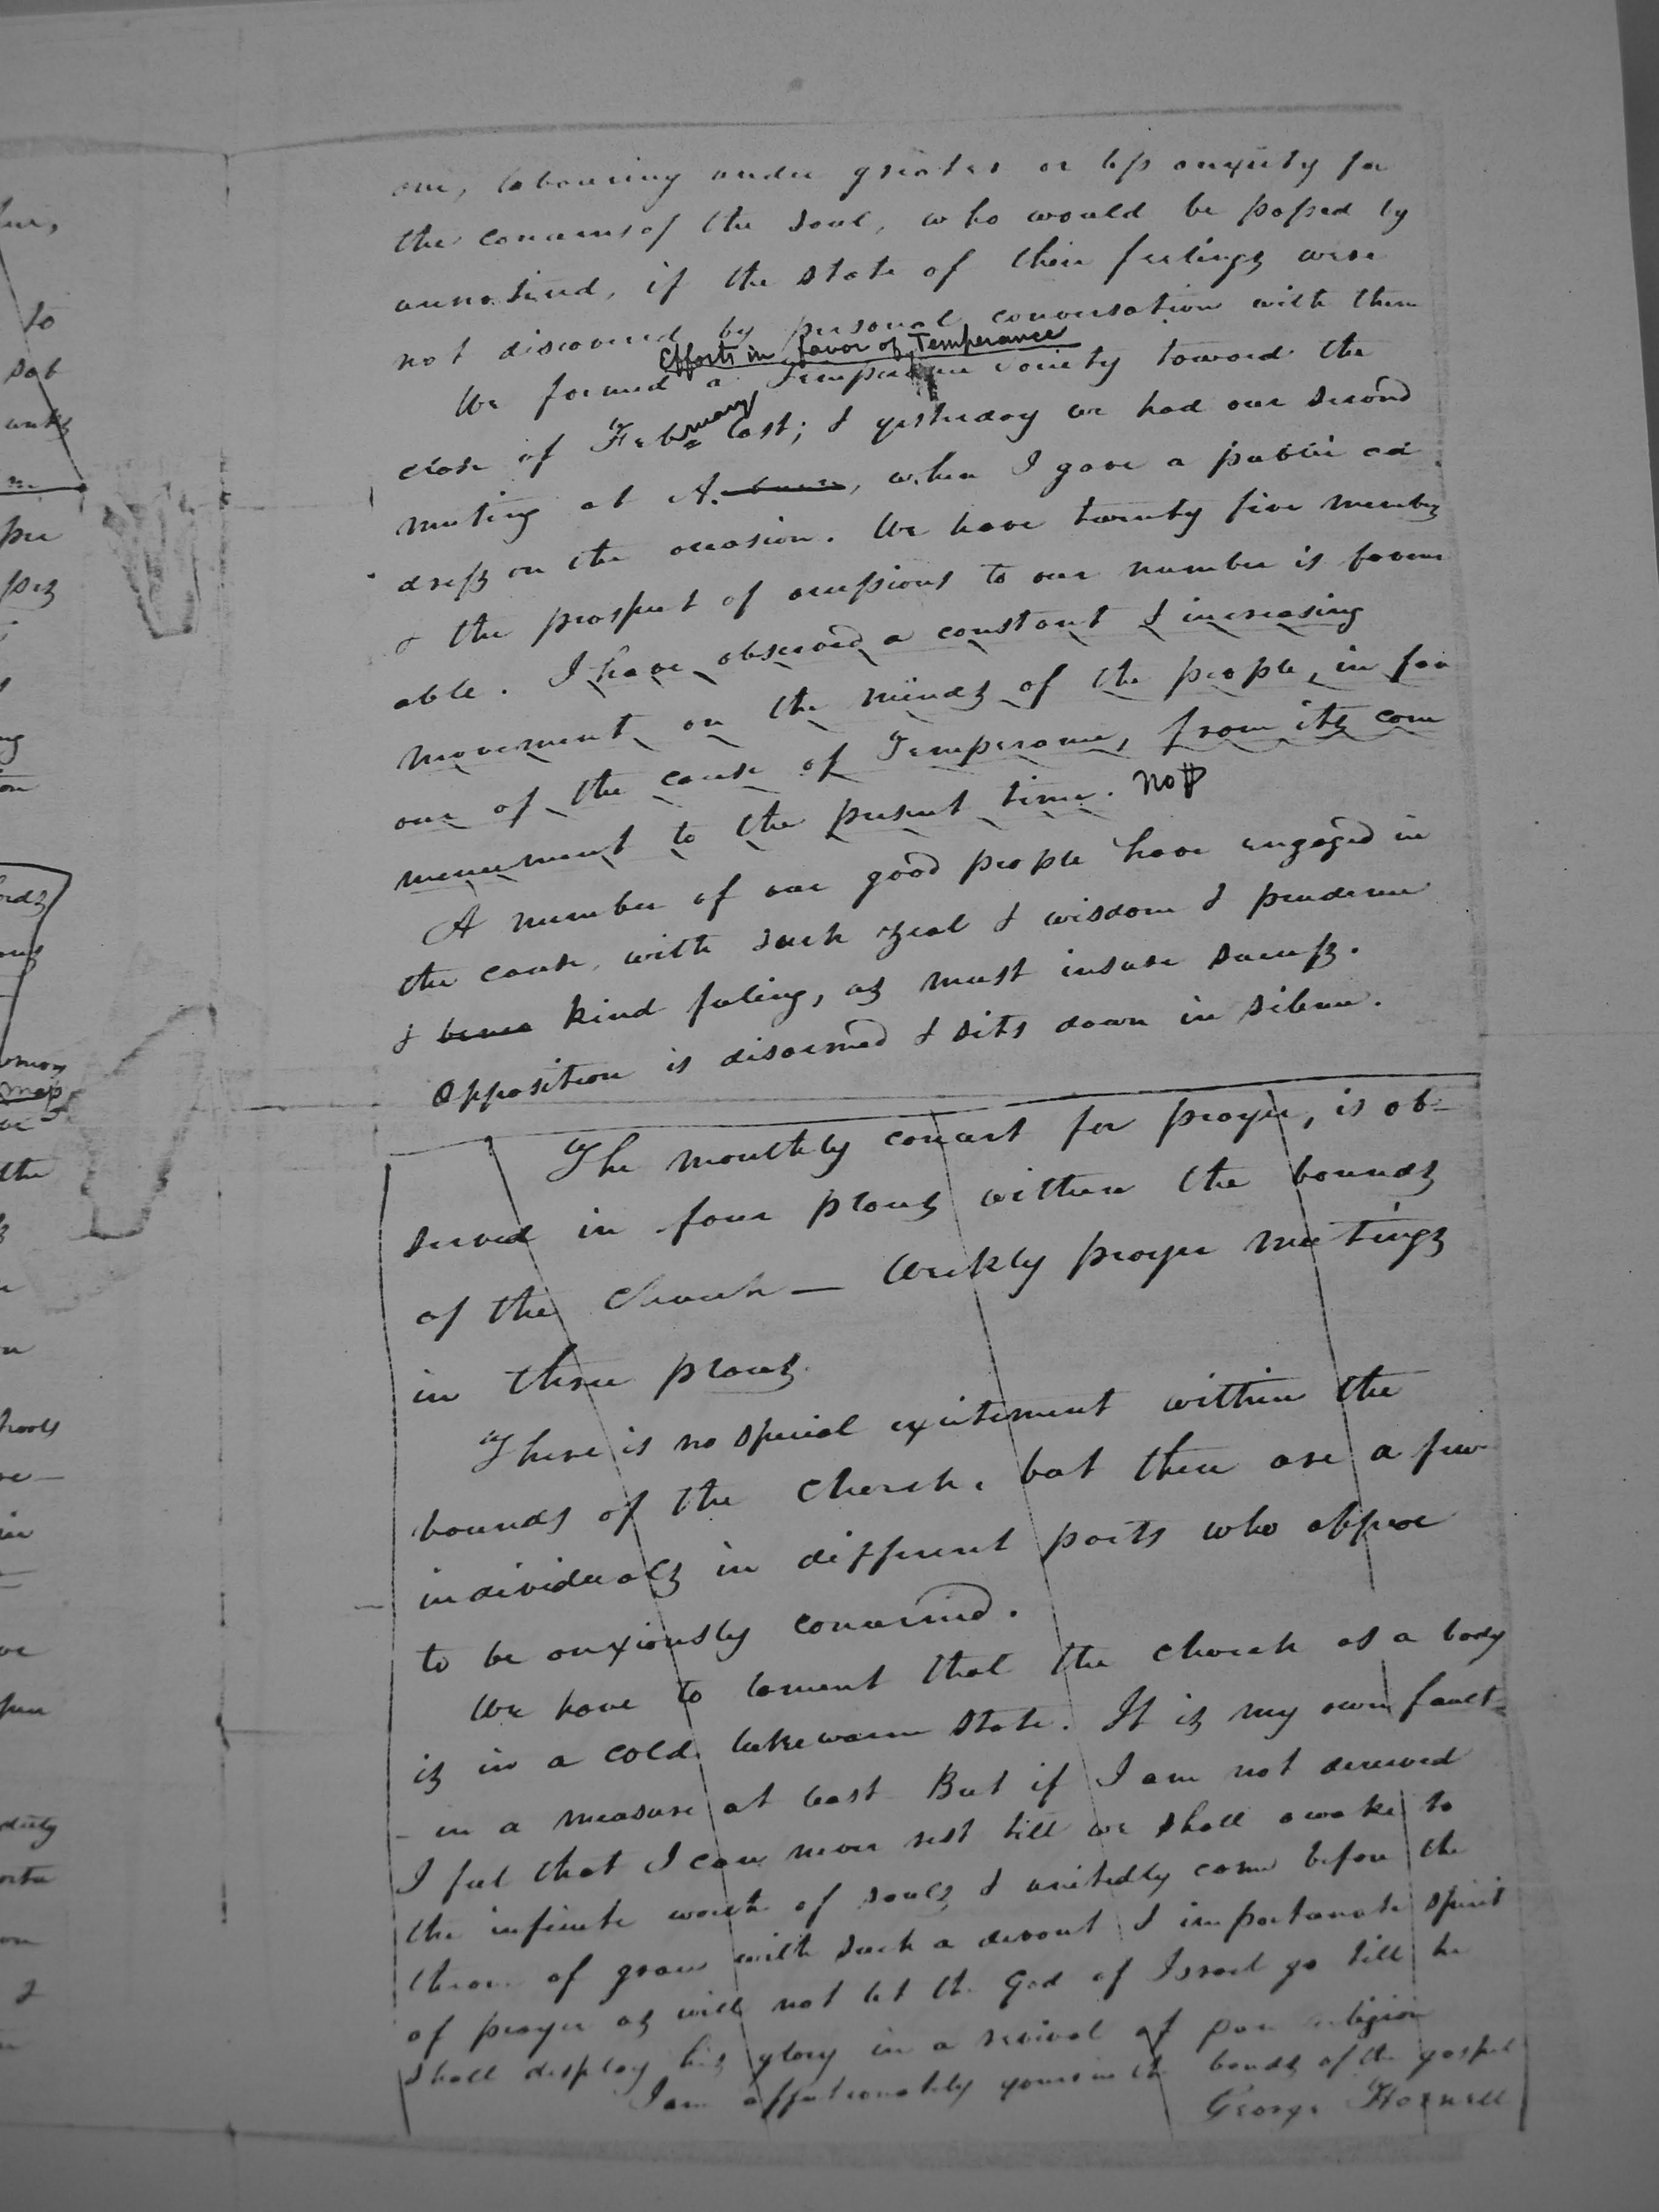 one, labouring under greater or less anxiety for
the concerns of the soul, who would be passed by
unnoticed, if the state of their feelings were
not discovered by personal conversation with them
Efforts in favor of Temperance
We formed a Temperance Society toward the
close of February last; & yesterday we had our second
meeting at A. , when I gave a public ad
dress on the occasion. We have twenty five members
& the prospect of accessions to our number is favour
able. I have observed a constant & increasing
movement on the minds of the people, in fav
our of the cause of Temperance, from its com
mencement to the present time. No ¶
A number of our good people have engaged in
the cause, with such zeal & wisdom & prudence
& kind feeling, as must insure success.
Opposition is disarmed & sits down in silence.
The monthly concert for prayer, is ob-
served in four places within the bounds
of the Church — Weekly prayer meetings
in three places.
There is no special excitement within the
bounds of the Church, but there are a few
individuals in different parts who appear
to be anxiously concerned.
We have to lament that the church as a body
is in a cold lukewarm state. It is my own fault
- in a measure at least But if I am not deceived
I feel that I can never rest till we shall awake to
the infinite worth of souls & unitedly come before the
throne of grace with such a devout & importunate spirit
of prayer as will not let the God of Israel go till he
shall display his glory in a revival of pure religion
I am affectionately yours in the bonds of the gospel
George Hornell
to
sab
the
hools
duty